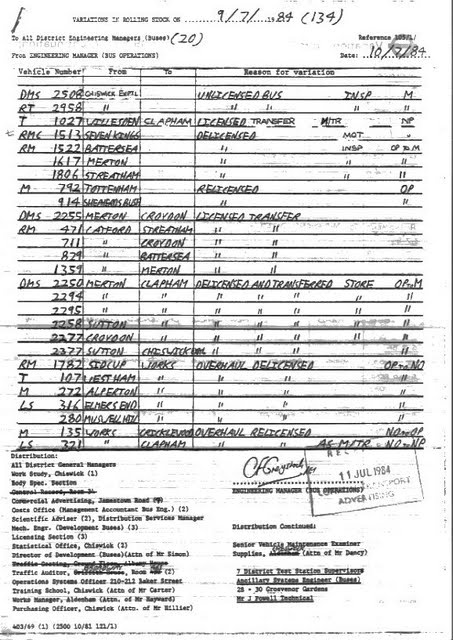 VARIATIONS IN ROLLING STOCK ON 9/7/ 1984 (134)
To All District Engineering Managers (Buses) (20) Reference
From ENGINEERING MANAGER (BUS OPERATIONS) Date: 10/7/84
Vehicle Number From To Reason for variation
DMS 2508 CHISWICK EXPTL UNLICENSED BUS INSP M
RT 2958 " " " " "
T 1027 WILLESDEN CLAPHAM LICENSED TRANSFER M/TR NP
RMC 1513 SEVEN KINGS DELICENSED MOT "
RM 1522 BATTERSEA " INSP OP TO M
1617 MERTON " " "
1806 STREATHAM " " "
M 792 TOTTENHAM RELICENSED OP
914 SHEPHERDS BUSH " "
DMS 2255 MERTON CROYDON LICENSED TRANSFER
RM 471 CATFORD STREATHAM "
711 " CROYDON "
829 " BATTERSEA "
1359 " MERTON "
DMS 2250 MERTON CLAPHAM DELICENSED AND TRANSFERRED STORE OP to M
2294 " " " " " " "
2295 " " " " " " "
2258 SUTTON " " " " " "
2277 CROYDON " " " " " "
2377 SUTTON CHISWICK " " " " "
RM 1782 SIDCUP WORKS OVERHAUL DELICENSED OP to NO
T 107 WEST HAM " " " "
M 272 ALPERTON " " " "
LS 316 ELMERS END " " " "
280 MUSWELL HILL " " " "
M 135 WORKS CRICKLEWOOD OVERHAUL RELICENSED NO to OP
LS 321 " CLAPHAM " " AS M/TR NO to NP
Distribution:
All District General Managers
Work Study, Chiswick (1)
Body Spec. Section
Control Record, Room
Commercial Advertising, Jamestown Road
Costs Office (Management Accountant Bus Eng.) (2)
Scientific Adviser (2), Distribution Services Manager
Mech. Engr. (Development Buses) (3)
Licensing Section (3)
Statistical Office, Chiswick (2)
Director of Development (Buses)(Attn of Mr Simon)
Traffic Auditor, Room
Operations Systems Officer 210-212 Baker Street
Training School, Chiswick (Attn of Mr Carter)
Works Manager, Aldenham (Attn. of Mr Hayward)
Purchasing Officer, Chiswick (Attn. of Mr Hillier)
ENGINEERING MANAGER (BUS OPERATIONS)
11 JUL 1984
ADVERTISING
Distribution Continued:
Senior Vehicle Maintenance Examiner
Supplies, (Attn of Mr Dancy)
7 District Test Station Supervisors
Ancillary Systems Engineer (Buses)
28 - 30 Grosvenor Gardens
Mr J Powell Technical
403/69 (1) (2500 10/81 121/1)